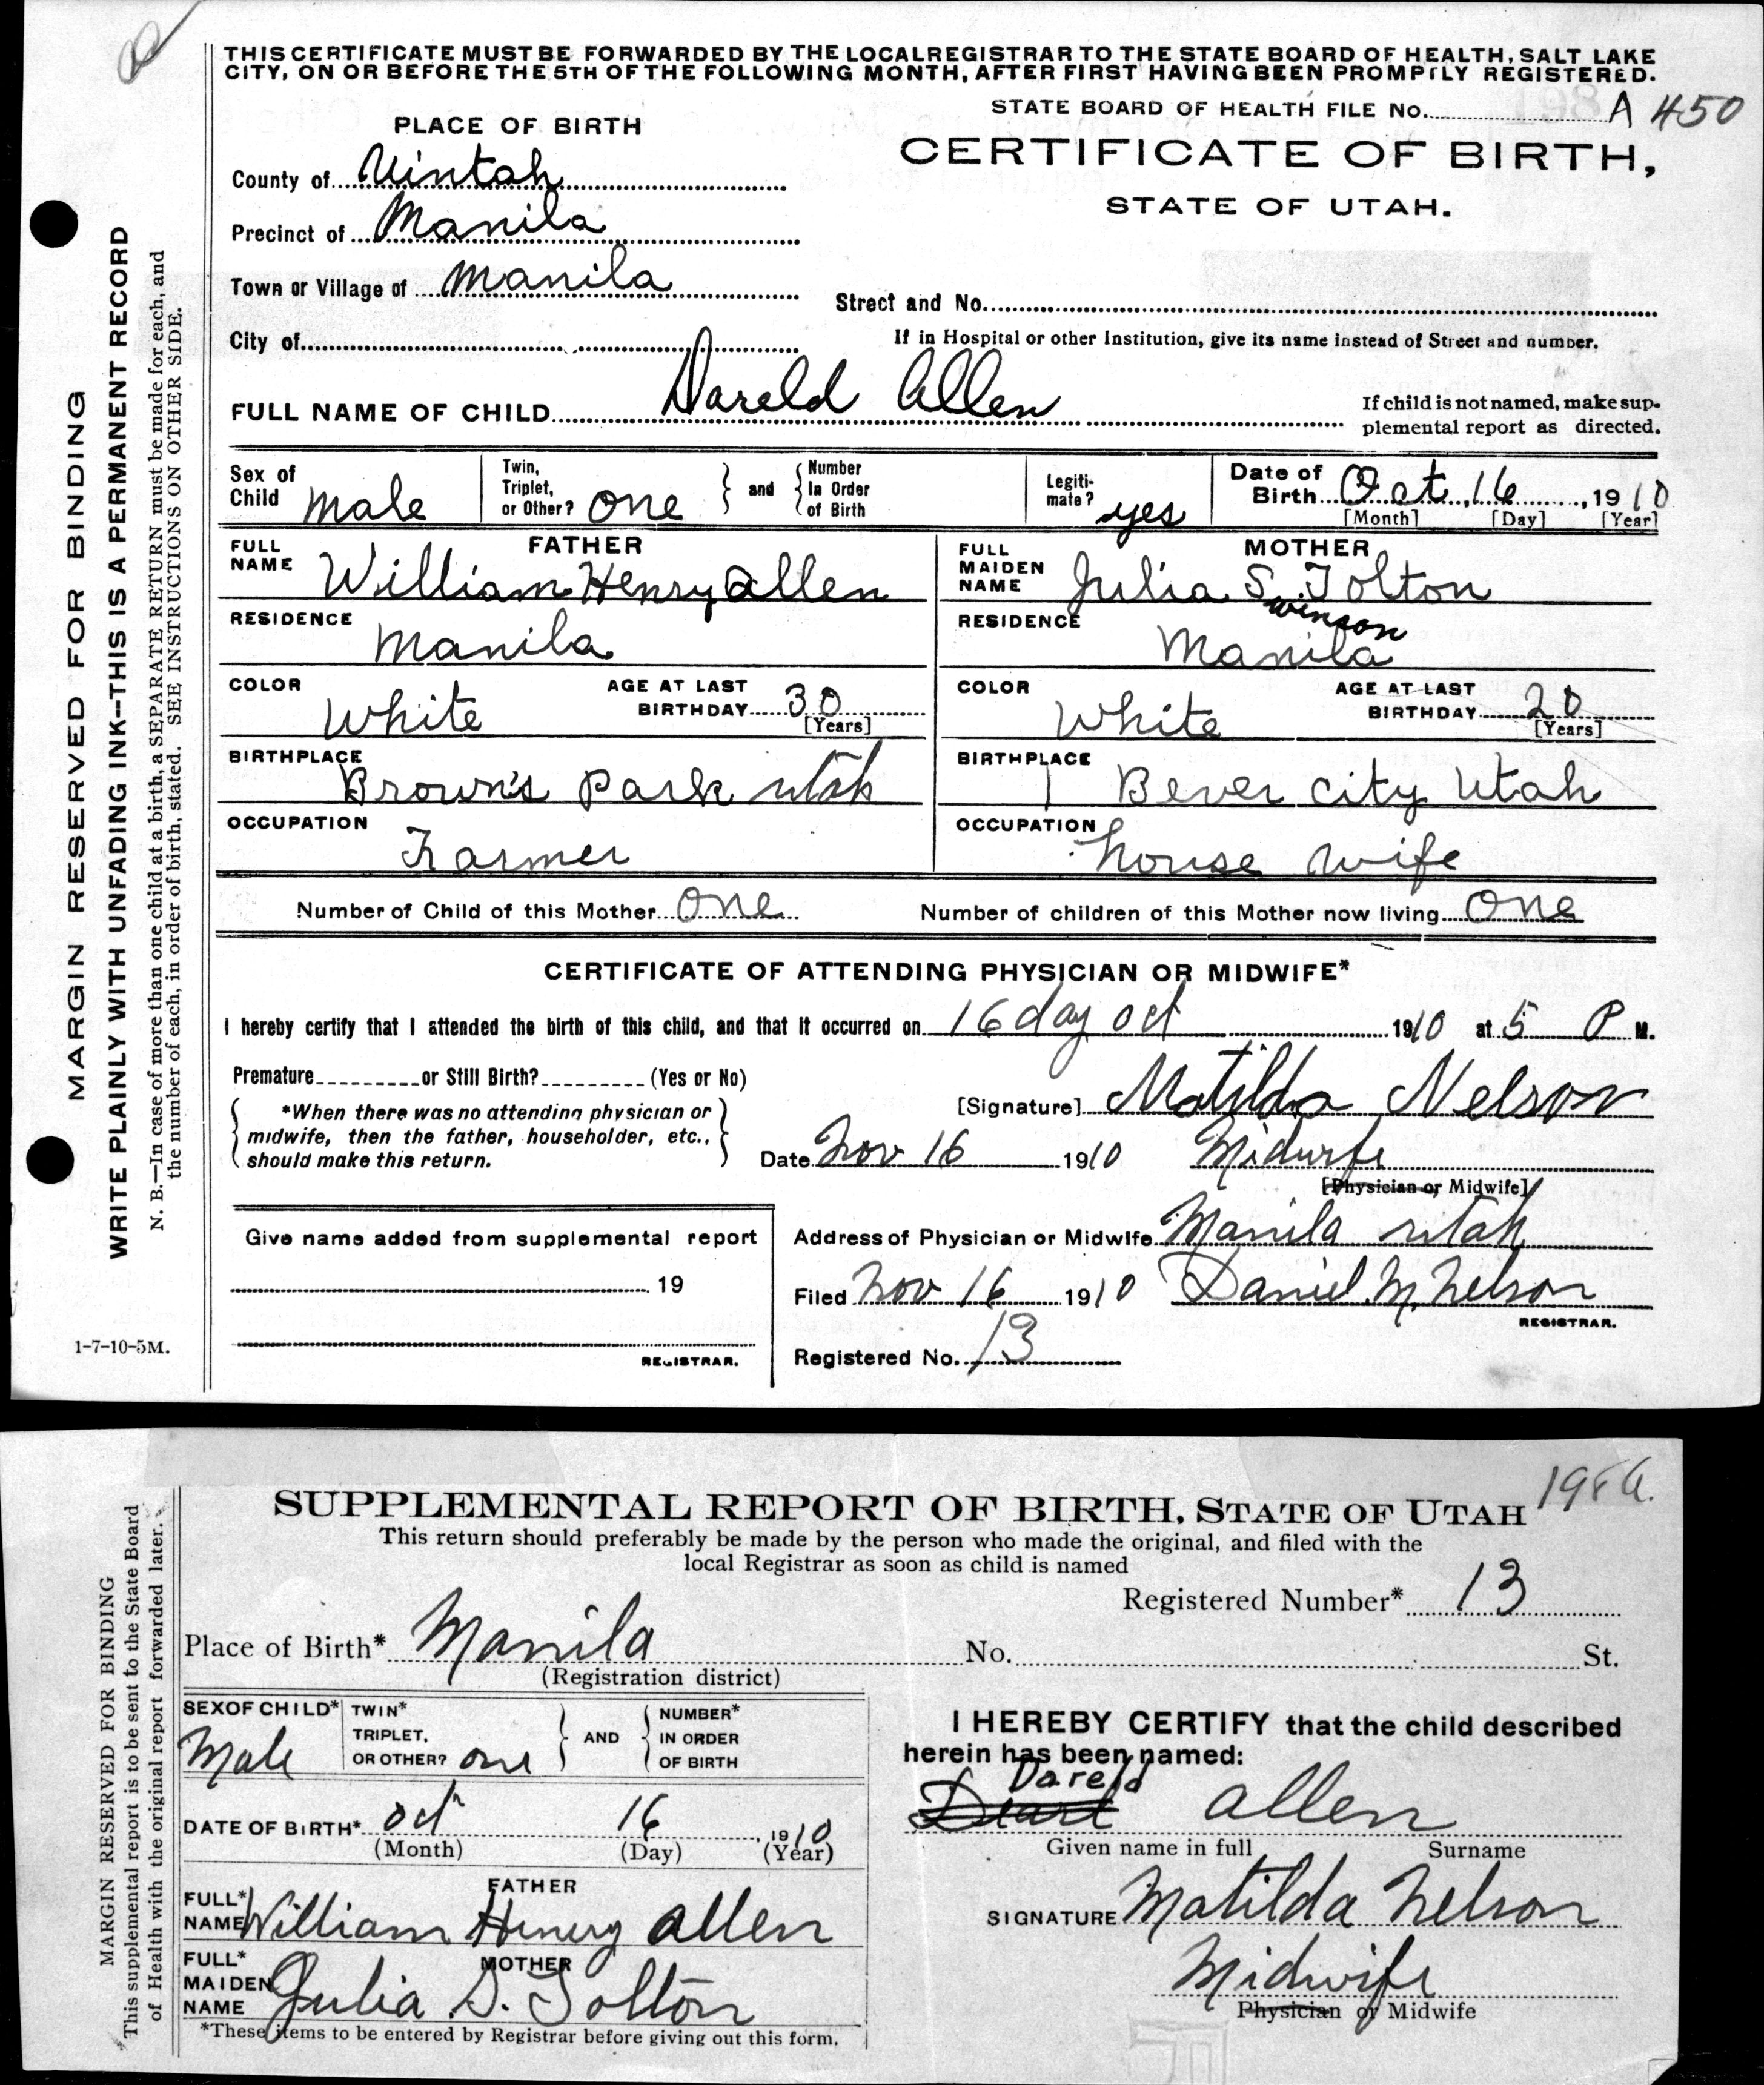 THIS CERTIFICATE MUST BE FORWARDED BY THE LOCAL REGISTRAR TO THE STATE BOARD OF HEALTH, SALT LAKE
CITY, ON OR BEFORE THE 5TH OF THE FOLLOWING MONTH, AFTER FIRST HAVING BEEN PROMPTLY REGISTERED.
STATE BOARD OF HEALTH FILE No. A 450
PLACE OF BIRTH
CERTIFICATE OF BIRTH,
STATE OF UTAH.
County of Uintah
Precinct of Manila
Town or Village of Manila
Street and No.
City of
If in Hospital or other Institution, give its name instead of Street and number.
FULL NAME OF CHILD Dareld Allen
If child is not named, make sup-
plemental report as directed.
Sex of Child Male
Twin, Triplet, or Other? one
and
Number In Order of Birth
Legiti-mate? yes
Date of Birth Oct. 16, 1910
[Month] [Day] [Year]
FATHER
FULL NAME William Henry Allen
MOTHER
FULL MAIDEN NAME Julia S. Tolton
winson
RESIDENCE Manila
RESIDENCE Manila
COLOR White
AGE AT LAST BIRTHDAY 30 [Years]
COLOR White
AGE AT LAST BIRTHDAY 20 [Years]
BIRTHPLACE Brown's Park utah
BIRTHPLACE Bever city Utah
OCCUPATION Farmer
OCCUPATION house wife
Number of Child of this Mother one
Number of children of this Mother now living one
CERTIFICATE OF ATTENDING PHYSICIAN OR MIDWIFE*
I hereby certify that I attended the birth of this child, and that it occurred on 16 day oct 1910 at 5 P M.
Premature or Still Birth? (Yes or No)
[Signature] Matilda Nelson
*When there was no attending physician or
midwife, then the father, householder, etc.,
should make this return.
Date Nov 16 1910 Midwife
[Physician or Midwife]
Give name added from supplemental report
Address of Physician or Midwife Manila utah
19
Filed Nov 16 1910 Daniel M. Nelson
REGISTRAR.
REGISTRAR.
Registered No. 13
MARGIN RESERVED FOR BINDING
WRITE PLAINLY WITH UNFADING INK--THIS IS A PERMANENT RECORD
N. B.—In case of more than one child at a birth, a SEPARATE RETURN must be made for each, and
the number of each, in order of birth, stated. SEE INSTRUCTIONS ON OTHER SIDE.
1-7-10-5M.
SUPPLEMENTAL REPORT OF BIRTH, STATE OF UTAH
This return should preferably be made by the person who made the original, and filed with the
local Registrar as soon as child is named
Registered Number* 13
Place of Birth* Manila No. St.
(Registration district)
SEX OF CHILD* Male
TWIN* TRIPLET, OR OTHER? one
AND
NUMBER* IN ORDER OF BIRTH
I HEREBY CERTIFY that the child described
herein has been named:
Dareld
Allen
Given name in full Surname
DATE OF BIRTH* oct 16, 1910
(Month) (Day) (Year)
FATHER
FULL* NAME William Henry Allen
SIGNATURE Matilda Nelson
MOTHER
FULL* MAIDEN NAME Julia S. Tolton
Midwife
Physician or Midwife
*These items to be entered by Registrar before giving out this form.
MARGIN RESERVED FOR BINDING
This supplemental report is to be sent to the State Board
of Health with the original report forwarded later.